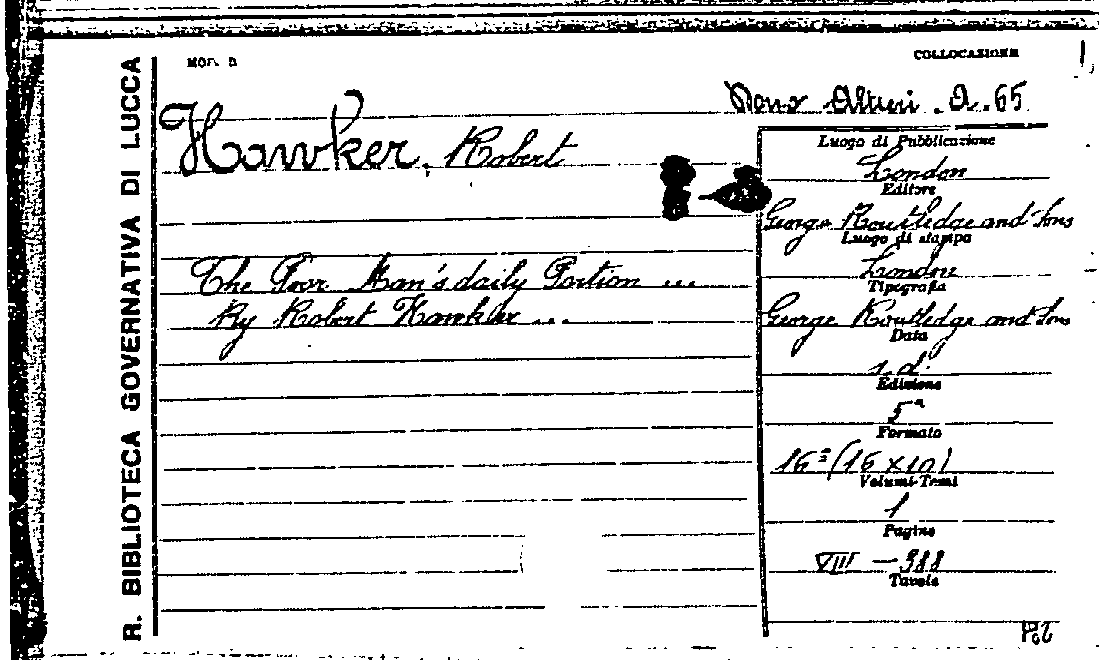 R. BIBLIOTECA GOVERNATIVA DI LUCCA
Mod. B
COLLOCAZIONE
Dono Altieri . A . 65
Hawker, Robert
The Poor Man's daily Portion ...
By Robert Hawkler ...
Luogo di Pubblicazione
London
Editore
George Routledge and Sons
Luogo di stampa
London
Tipografia
George Routledge and Sons
Data
s. d.
Edizione
5ª
Formato
16º (16 x 10)
Volumi-Tomi
1
Pagine
VIII - 388
Tavole